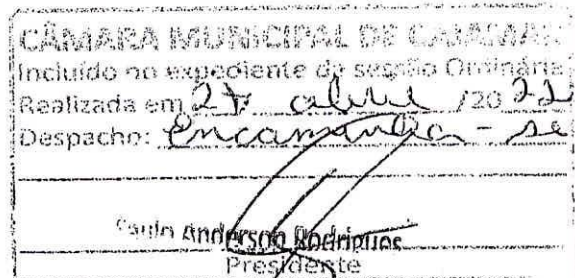 CÂMARA MUNICIPAL DE CAJAMAR
Incluído no expediente da sessão Ordinária
Realizada em 27 abril /2022
Despacho: Encaminha-se
Paulo Anderson Rodrigues
Presidente